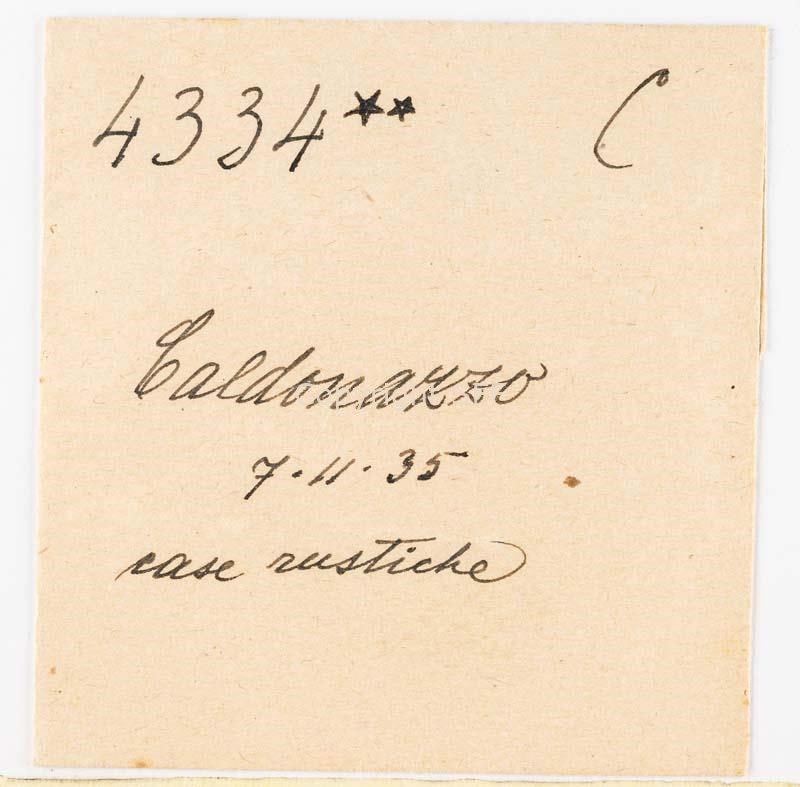 4334** C
Caldonazzo
7.11.35
case rustiche